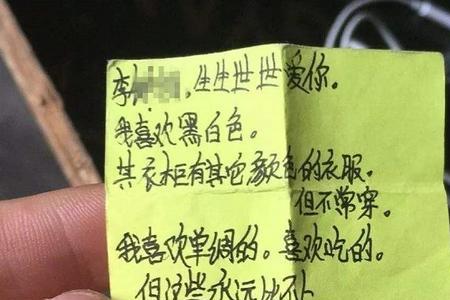 李 , 生生世世爱你.
我喜欢黑白色。
其衣柜有其它颜色的衣服.
但不常穿。
我喜欢单绸的.喜欢吃的.
但这些永远比不上